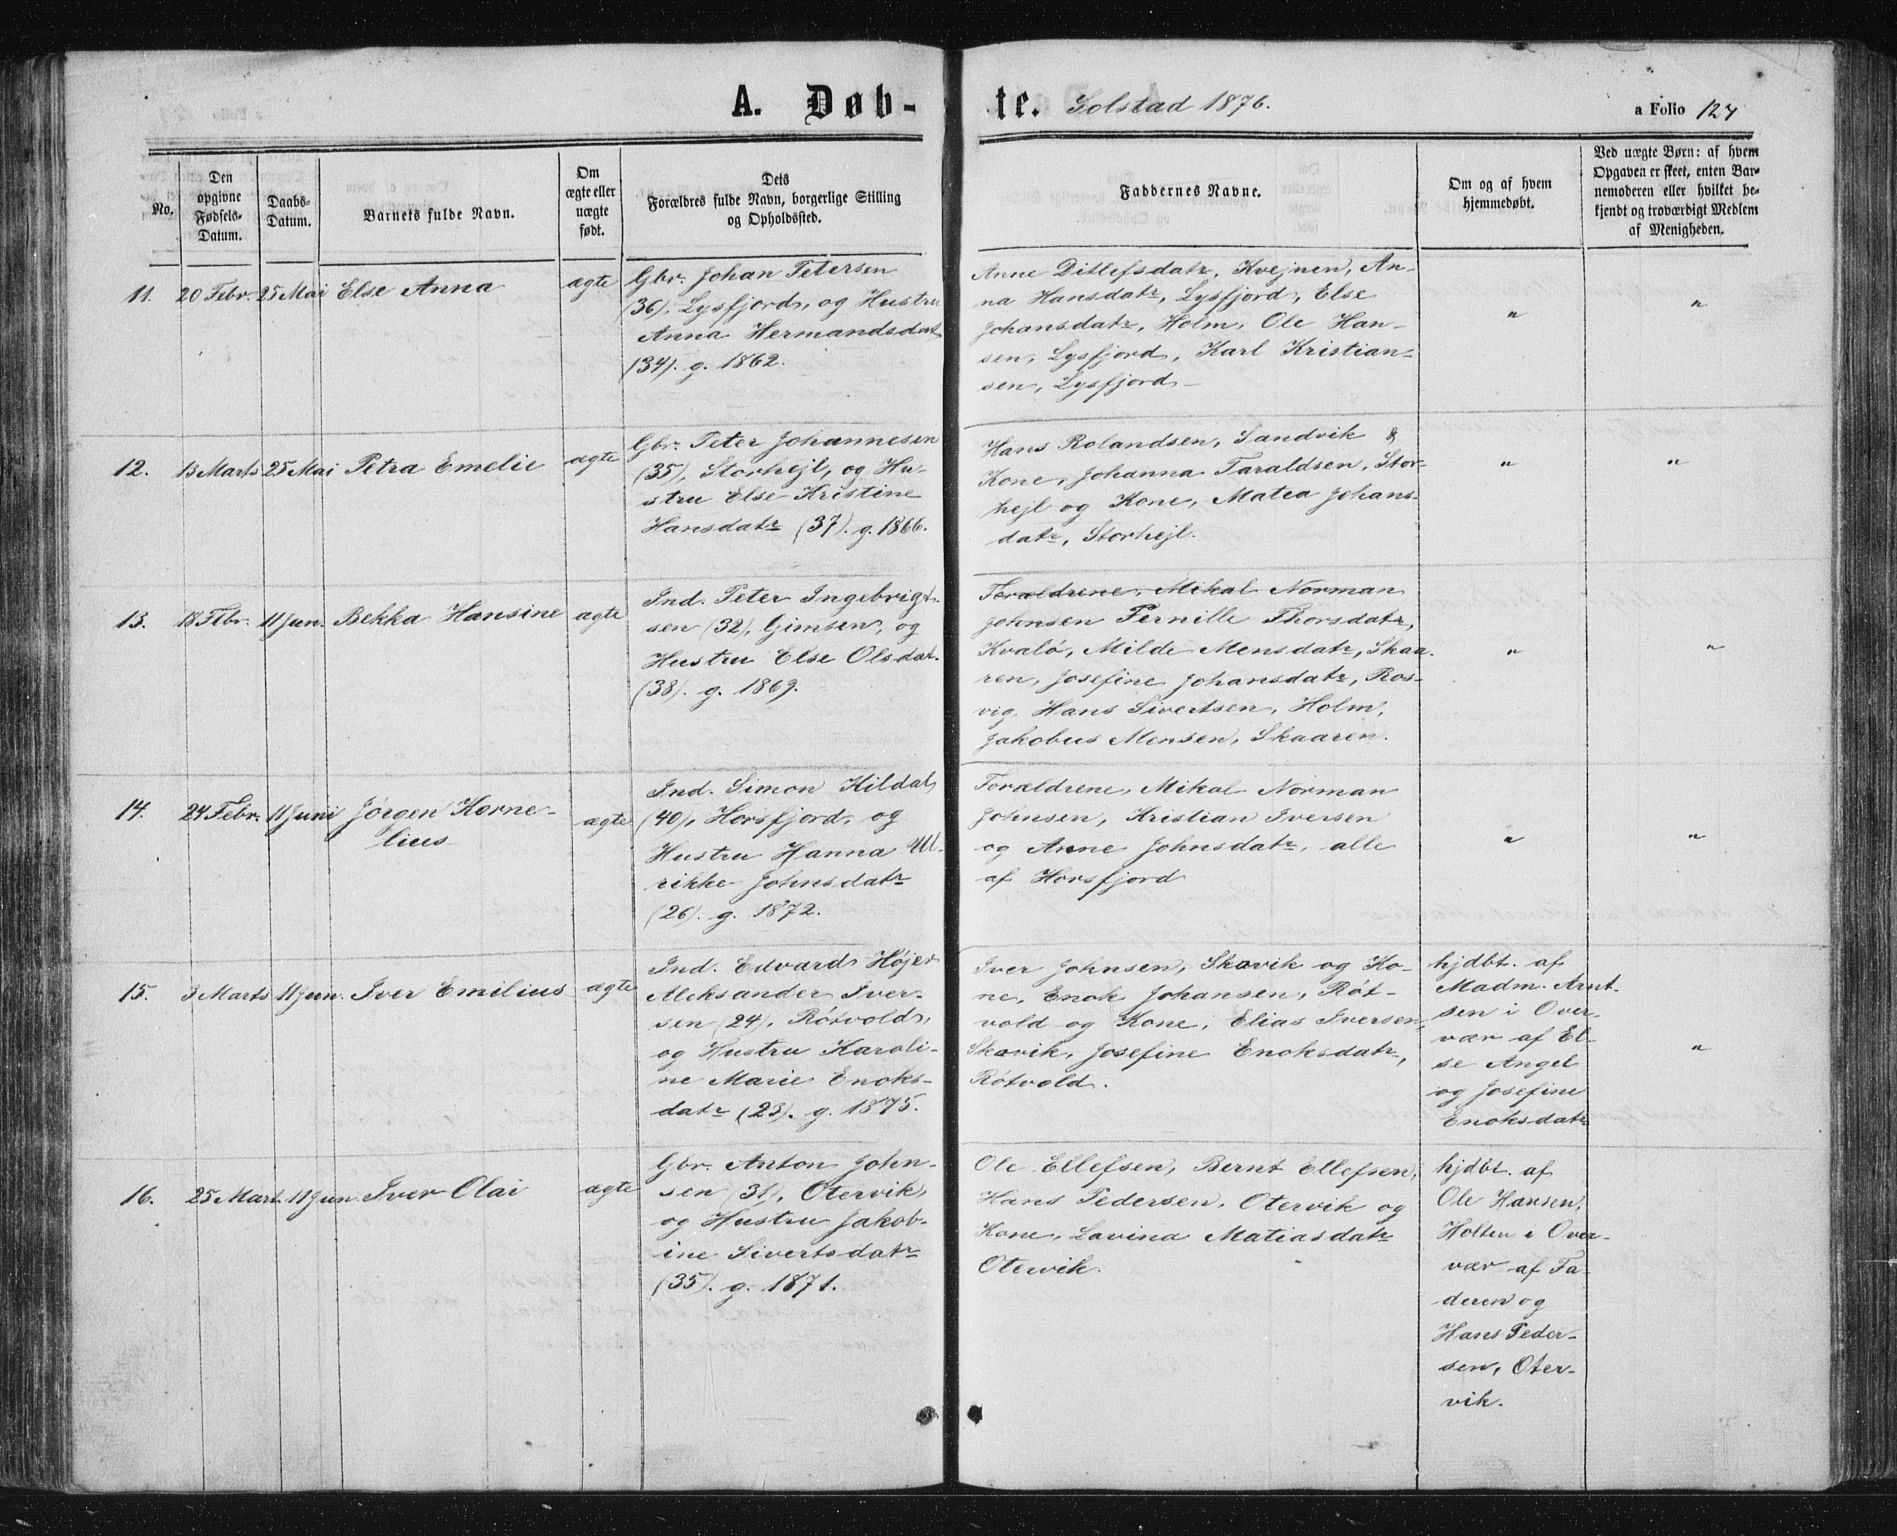 A. Døb-
te. Solstad 1876.
a Folio 124
No.
Den
opgivne
Fødsels-
Datum.
Daabs-
Datum.
Barnets fulde Navn.
Om
ægte eller
uægte
født.
Dets
Forældres fulde Navn, borgerlige Stilling
og Opholdssted.
Faddernes Navne.
Om og af hvem
hjemmedøbt.
Ved uægte Børn: af hvem
Opgaven er skeet, enten Bar-
nemoderen eller hvilket be-
kjendt og troværdigt Medlem
af Menigheden.
11. 20 Febr. 25 Mai Else Anna ægte
Gbr. Johan Petersen
(36), Lysfjord, og Hustru
Anna Hermandsdat
(34). g. 1862.
Anne Ditlefsdatr, Kvejnen, An-
na Hansdatr, Lysfjord, Else
Johansdatr, Holm, Ole Han-
sen, Lysfjord, Karl Kristian-
sen, Lysfjord
"
"
12. 13 Marts 25 Mai Petra Emelie ægte
Gbr. Peter Johannesen
(35), Storhejl, og Hu-
stru Else Kristine
Hansdatr (37). g. 1866.
Hans Rolandsen, Sandvik &
Kone, Johanna Taraldsen, Stor-
hejl og Kone, Matea Johans-
datr, Storhejl.
"
"
13. 18 Febr. 11 Jun. Bekka Hansine ægte
Ind. Peter Ingebrigt-
sen (32), Gimsen, og
Hustru Else Olsdat.
(38). g. 1869.
Forældrene, Mikal Norman
Johnsen Pernille Thorsdatr,
Kvalö, Milde Mensdatr, Skaa-
ren, Josefine Johansdatr, Ros-
vig, Hans Sivertsen, Holm,
Jakobus Mensen, Skaaren.
"
"
14. 24 Febr. 11 Juni Jörgen Korne-
lius
ægte
Ind. Simon Kildal
(40), Horsfjord, og
Hustru Hanna Ul-
rikke Johnsdatr
(26). g. 1872.
Forældrene, Mikal Norman
Johnsen, Kristian Iversen
og Anne Johnsdatr, alle
af Horsfjord
"
"
15. 3 Marts 11 Jun. Iver Emilius ægte
Ind. Edvard Höjer
Aleksander Iver-
sen (24), Rötvold,
og Hustru Karoli-
ne Marie Enoks-
datr (23). g. 1875.
Iver Johnsen, Skavik og Ko-
ne, Enok Johansen, Röt-
vold og Kone, Elias Iversen,
Skavik, Josefine Enoksdatr,
Rötvold.
hjdbt. af
Madm. Arnt-
sen i Over-
vær af El-
se Angel
og Josefine
Enoksdatr
"
16. 25 Mart. 11 Jun. Iver Olai ægte
Gbr. Anton John-
sen (31), Otervik,
og Hustru Jakob-
ine Sivertsdatr
(35). g. 1871.
Ole Ellefsen, Bernt Ellefsen,
Hans Pedersen, Otervik og
Kone, Lavina Matiasdatr
Otervik.
hjdbt. af
Ole Hansen,
Holten i Over-
vær af Fa-
deren og
Hans Peder-
sen, Oter-
vik.